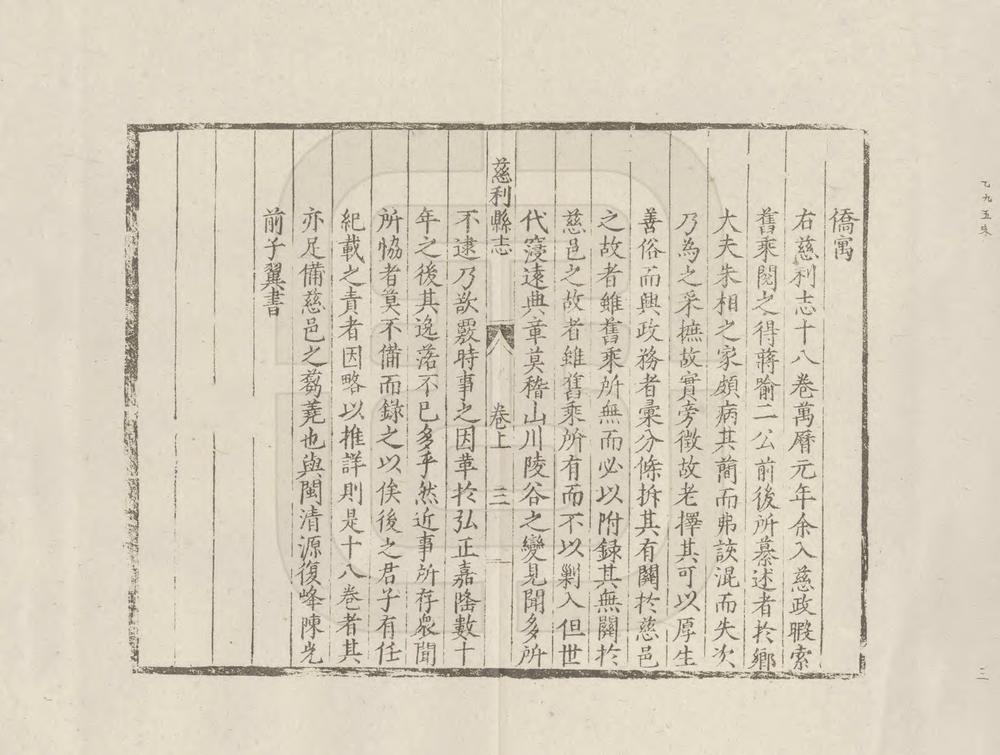 僑寓
右慈利志十八卷萬曆元年余入慈政暇索
舊乘閱之得蔣喻二公前後所纂述者於鄉
大夫朱相之家頗病其蕳而弗詼混而失次
乃為之采摭故實旁徵故老擇其可以厚生
善俗而興政務者彙分條拆其有關於慈邑
之故者雖舊乘所無而必以附録其無關於
慈邑之故者雖舊乘所有而不以剿入但世
代寖遠典章莫稽山川陵谷之變見聞多所
慈利縣志
卷上
三
不逮乃欲覈時事之因革於弘正嘉隆數十
年之後其逸落不已多乎然近事所存衆聞
所恊者莫不備而録之以俟後之君子有任
紀載之責者因略以推詳則是十八卷者其
亦足備慈邑之蒭蕘也與閩清源復峰陳光
前子翼書
乙九五朱
三